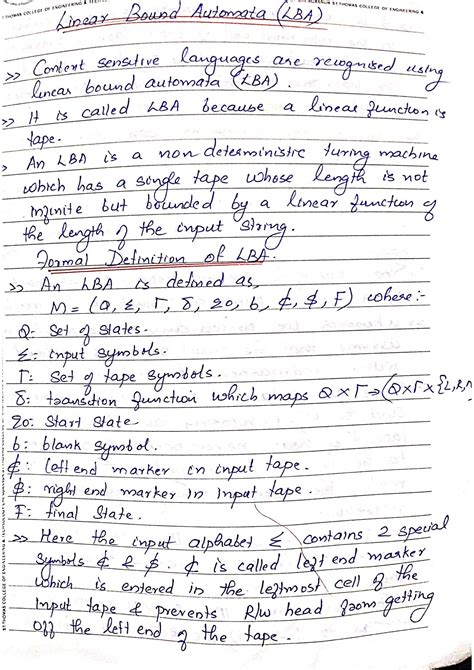 ST THOMAS COLLEGE OF ENGINEERING &
Linear Bound Automata (LBA)
>> Context sensitive languages are recognised using
linear bound automata (LBA).
>> It is called LBA because a linear function is
tape.
> An LBA is a non deterministic turing machine
which has a single tape whose length is not
infinite but bounded by a linear function of
the length of the input string.
Formal Definition of LBA.
>> An LBA is defined as,
M = (Q, Σ, Γ, δ, q0, b, ¢, $, F) where:-
Q- Set of States.
Σ: input symbols.
Γ: Set of tape symbols.
δ: transition function which maps Q×Γ→(Q×Γ×{L,R,
q0: Start State
b: blank symbol.
¢: left end marker in input tape.
$: right end marker in input tape.
F: final State.
>> Here the input alphabet Σ contains 2 special
symbols ¢ & $. ¢ is called left end marker
which is entered in the leftmost cell of the
input tape & prevents R/w head from getting
off the left end of the tape.